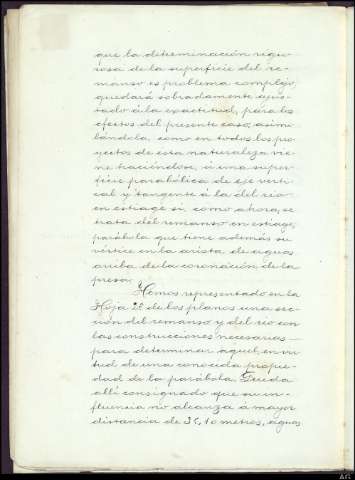 que la determinación rigu-
rosa de la superficie del re-
manso es problema complejo,
quedará sobradamente ajus-
tado á la exactitud, para los
efectos del presente caso, asimi-
lándola, como en todos los pro-
yectos de esta naturaleza vie-
ne haciéndose, á una super-
ficie parabólica de eje verti-
cal y tangente á la del río
en estiage si, como ahora, se
trata del remanso en estiage,
parábola que tiene además su
vértice en la arista de aguas
arriba de la coronación de la
presa.
Hemos representado en la
Hoja 2ª de los planos una sec-
ción del remanso y del río con
las construcciones necesarias
para determinar aquel, en vir-
tud de una conocida propie-
dad de la parábola. Queda
allí consignado que su in-
fluencia no alcanza á mayor
distancia de metros, aguas